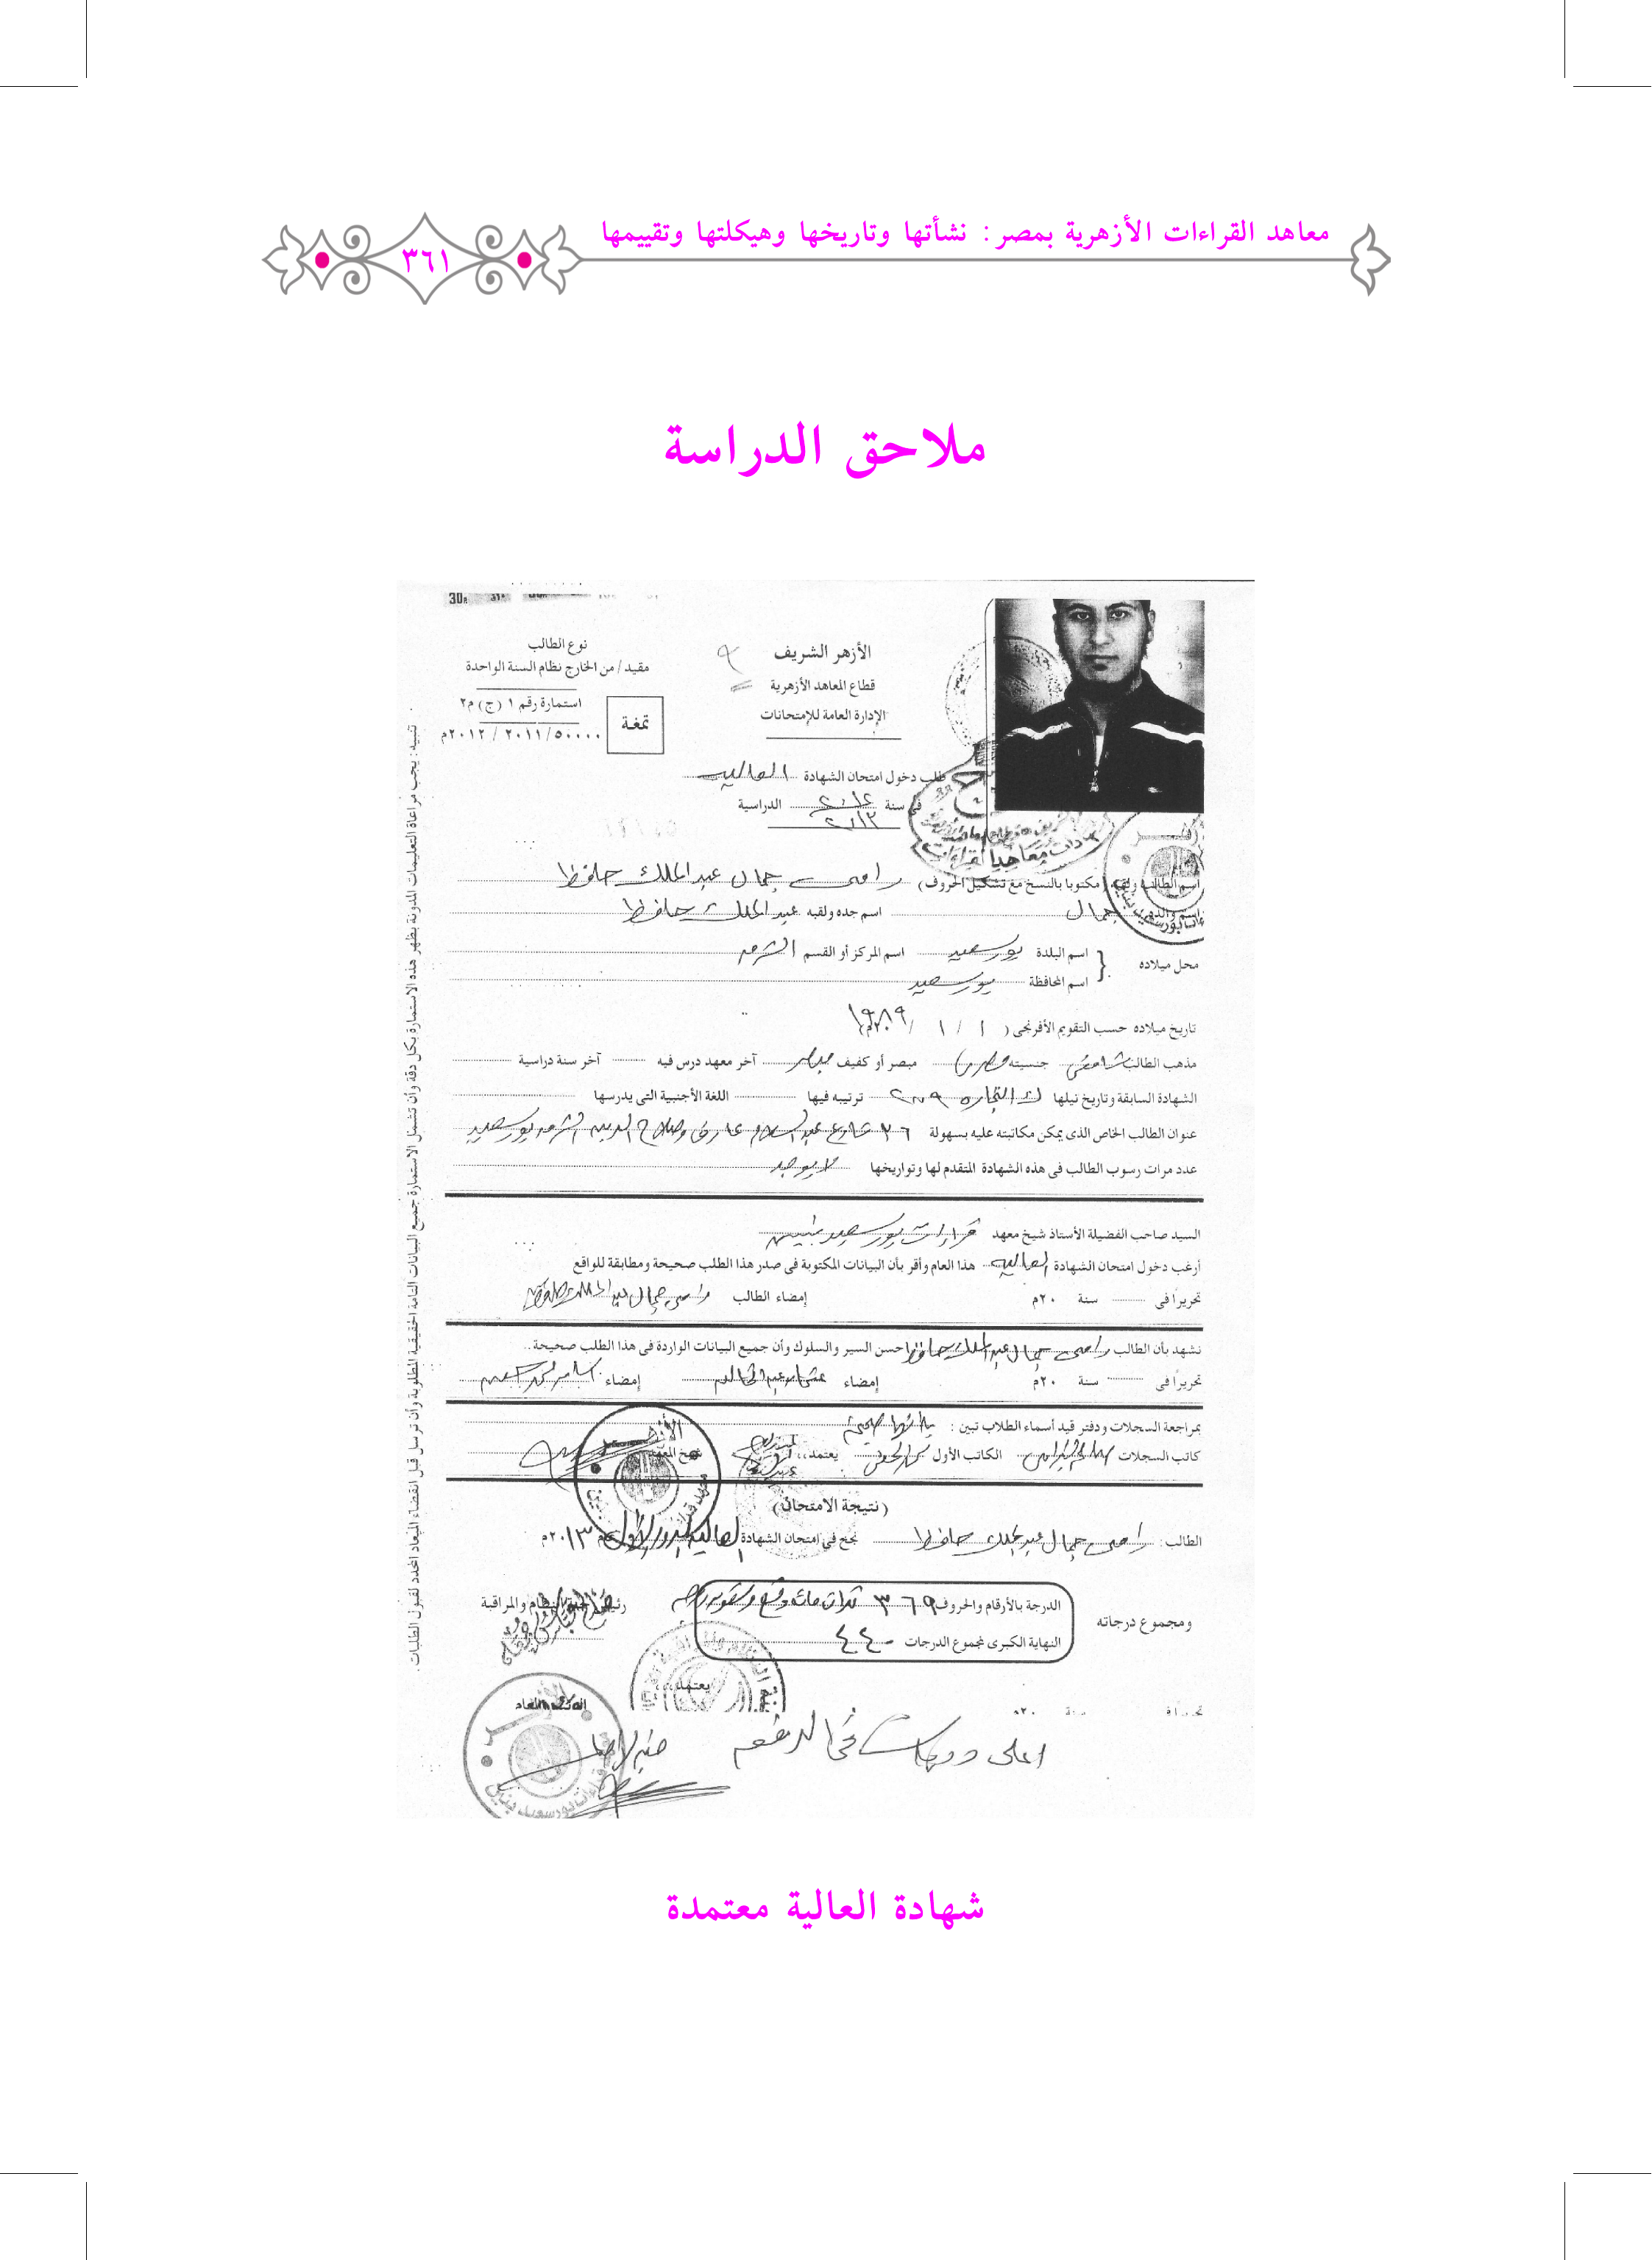 معاهد القراءات الأزهرية بمصر: نشأتها وتاريخها وهيكلتها وتقييمها
٣٦١
ملاحق الدراسة
الأزهر الشريف
قطاع المعاهد الأزهرية
الإدارة العامة للإمتحانات
نوع الطالب
مقيد / من الخارج نظام السنة الواحدة
استمارة رقم ١ (ج) م٢
٥٠٠٠٠ / ٢٠١١ / ٢٠١٢م
تمغة
طلب دخول امتحان الشهادة العالية
في سنة ٢٠١٢ ٢٠١٣ الدراسية
اسم الطالب ولقبه (مكتوبا بالنسخ مع تشكيل الحروف) رامى جمال عبد الملك حافظ
اسم والده جمال اسم جده ولقبه عبد الملك حافظ
محل ميلاده
اسم البلدة بورسعيد اسم المركز أو القسم الشرق
اسم المحافظة بورسعيد
تاريخ ميلاده حسب التقويم الأفرنجى ( ١ / ١ / ١٩٨٩م
مذهب الطالب شافعى جنسيته مصرى مبصر أو كفيف مبصر آخر معهد درس فيه آخر سنة دراسية
الشهادة السابقة وتاريخ نيلها ك التجارة ٢٠٠٩ ترتيبه فيها اللغة الأجنبية التى يدرسها
عنوان الطالب الخاص الذى يمكن مكاتبته عليه بسهولة ٢٦ شارع عبد السلام عارف وصلاح الدين الشرق بورسعيد
عدد مرات رسوب الطالب فى هذه الشهادة المتقدم لها وتواريخها لا يوجد
السيد صاحب الفضيلة الأستاذ شيخ معهد قراءات بورسعيد بنين
أرغب دخول امتحان الشهادة العالية هذا العام وأقر بأن البيانات المكتوبة فى صدر هذا الطلب صحيحة ومطابقة للواقع
تحريرًا فى سنة ٢٠م إمضاء الطالب رامى جمال عبد الملك حافظ
نشهد بأن الطالب رامى جمال عبد الملك حافظ حسن السير والسلوك وأن جميع البيانات الواردة فى هذا الطلب صحيحة..
تحريرًا فى سنة ٢٠م إمضاء إمضاء
بمراجعة السجلات ودفتر قيد أسماء الطلاب تبين :
كاتب السجلات الكاتب الأول يعتمد،، شيخ المعهد
(نتيجة الامتحان)
الطالب : رامى جمال عبد الملك حافظ نجح في إمتحان الشهادة العالية الدور الأول عام ٢٠١٣م
ومجموع درجاته
الدرجة بالأرقام والحروف ٣٦٩ ثلاث مائة وتسع وستون درجة
النهاية الكبرى لمجموع الدرجات ٤٤٠
رئيس لجنة النظام والمراقبة
يعتمد،،
أعلى درجات فى الدفعة
تنبيه : يجب مراعاة التعليمات المدونة بظهر هذه الاستمارة بكل دقة وأن تشمل الاستمارة جميع البيانات التامة الحقيقية المطلوبة وأن ترسل قبل انقضاء الميعاد المحدد لقبول الطلبات .
شهادة العالية معتمدة